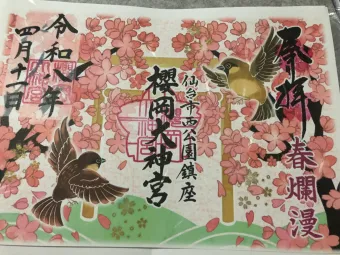 奉拝
春爛漫
仙台市西公園鎮座
櫻岡大神宮
令和八年
四月十一日